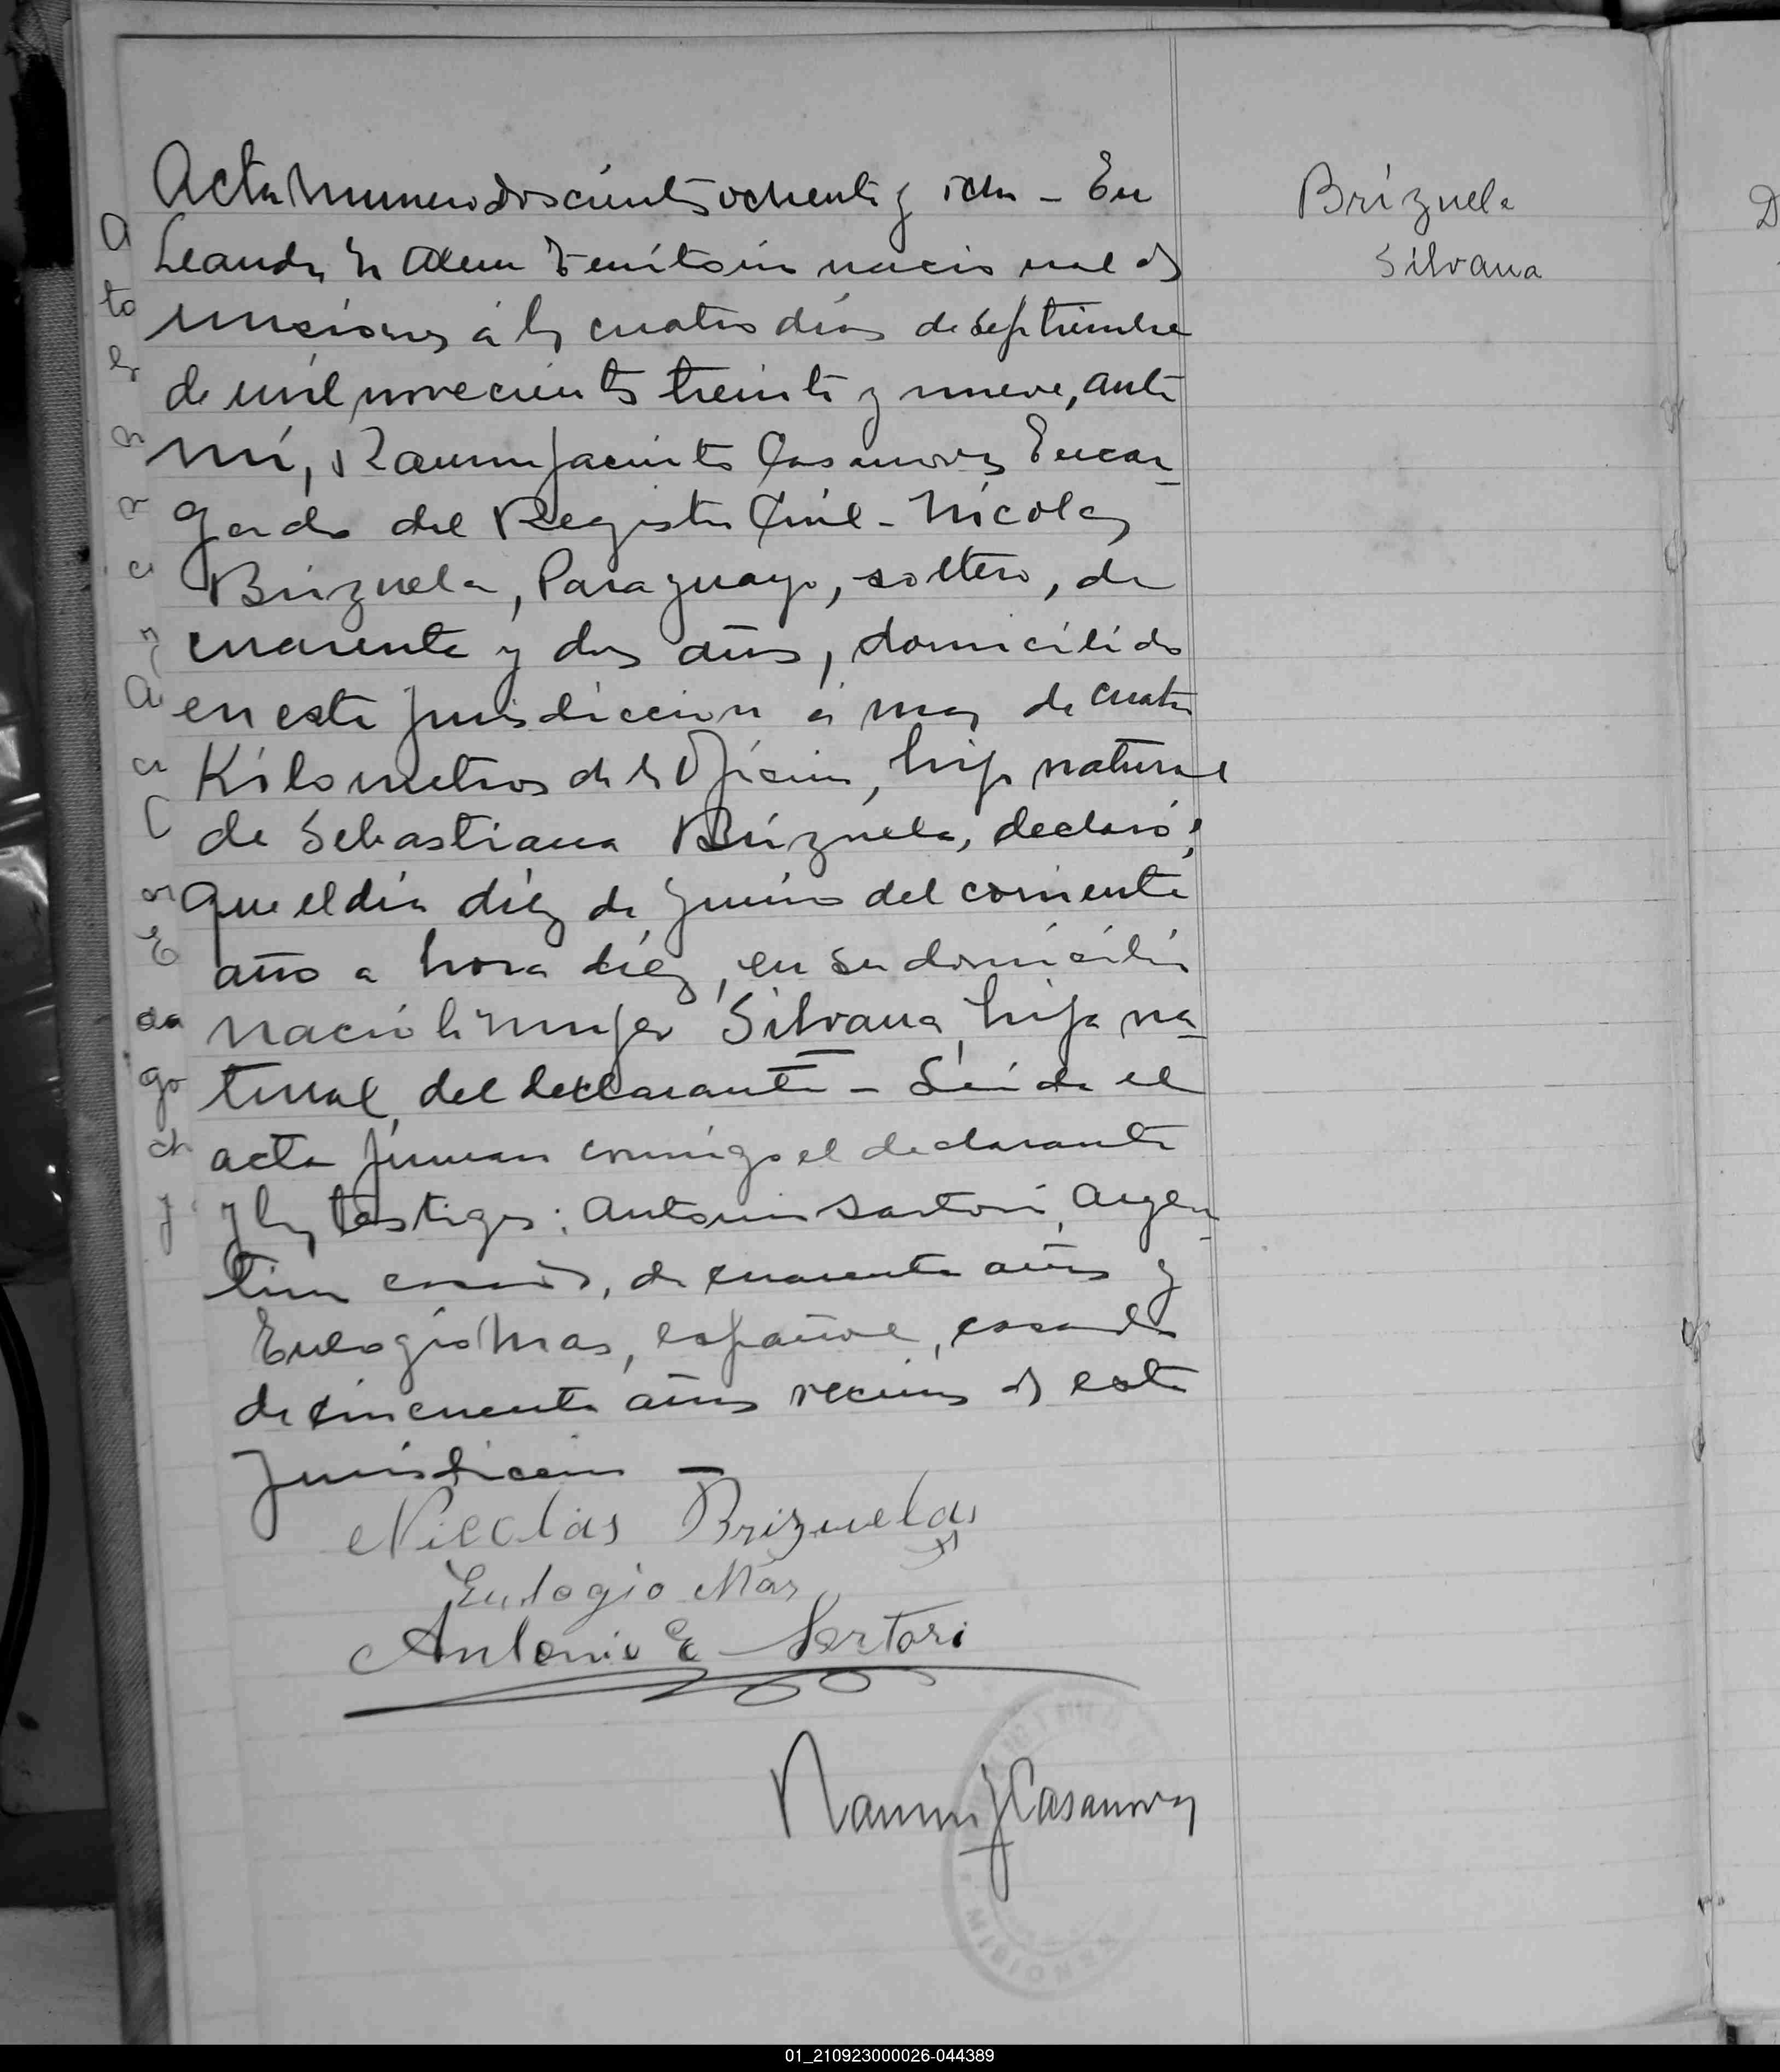 Acta Numero doscientos ochenta y ocho - En
Leandro N Alem Territorio nacional de
misiones á los cuatro días de Septiembre
de mil novecientos treinta y nueve, ante
mí, Ramon Jacinto Casanova, Encar-
gado del Registro Civil - Nicolas
Brizuela, Paraguayo, soltero, de
cuarenta y dos años, domicilido
en esta Jurisdiccion á mas de cuatro
Kilometros de la Oficina, hijo natural
de Sebastiana Brizuela, declaró;
que el día diez de Junio del corriente
año a hora diez, en su domicilio
nació la mujer Silvana, hija na-
tural, del declarante - Leida el
acta firman conmigo el declarante
y los testigos: Antonio Sartori, Argen-
tino casado, de cuarenta años y
Eulogio Mas, español, casado
de cincuenta años vecinos de esta
Jurisdiccion -
Nicolás Brizuela
Eulogio Mas
Antonio E Sartori
Ramon J Casanova
Brizuela
Silvana
01_210923000026-044389